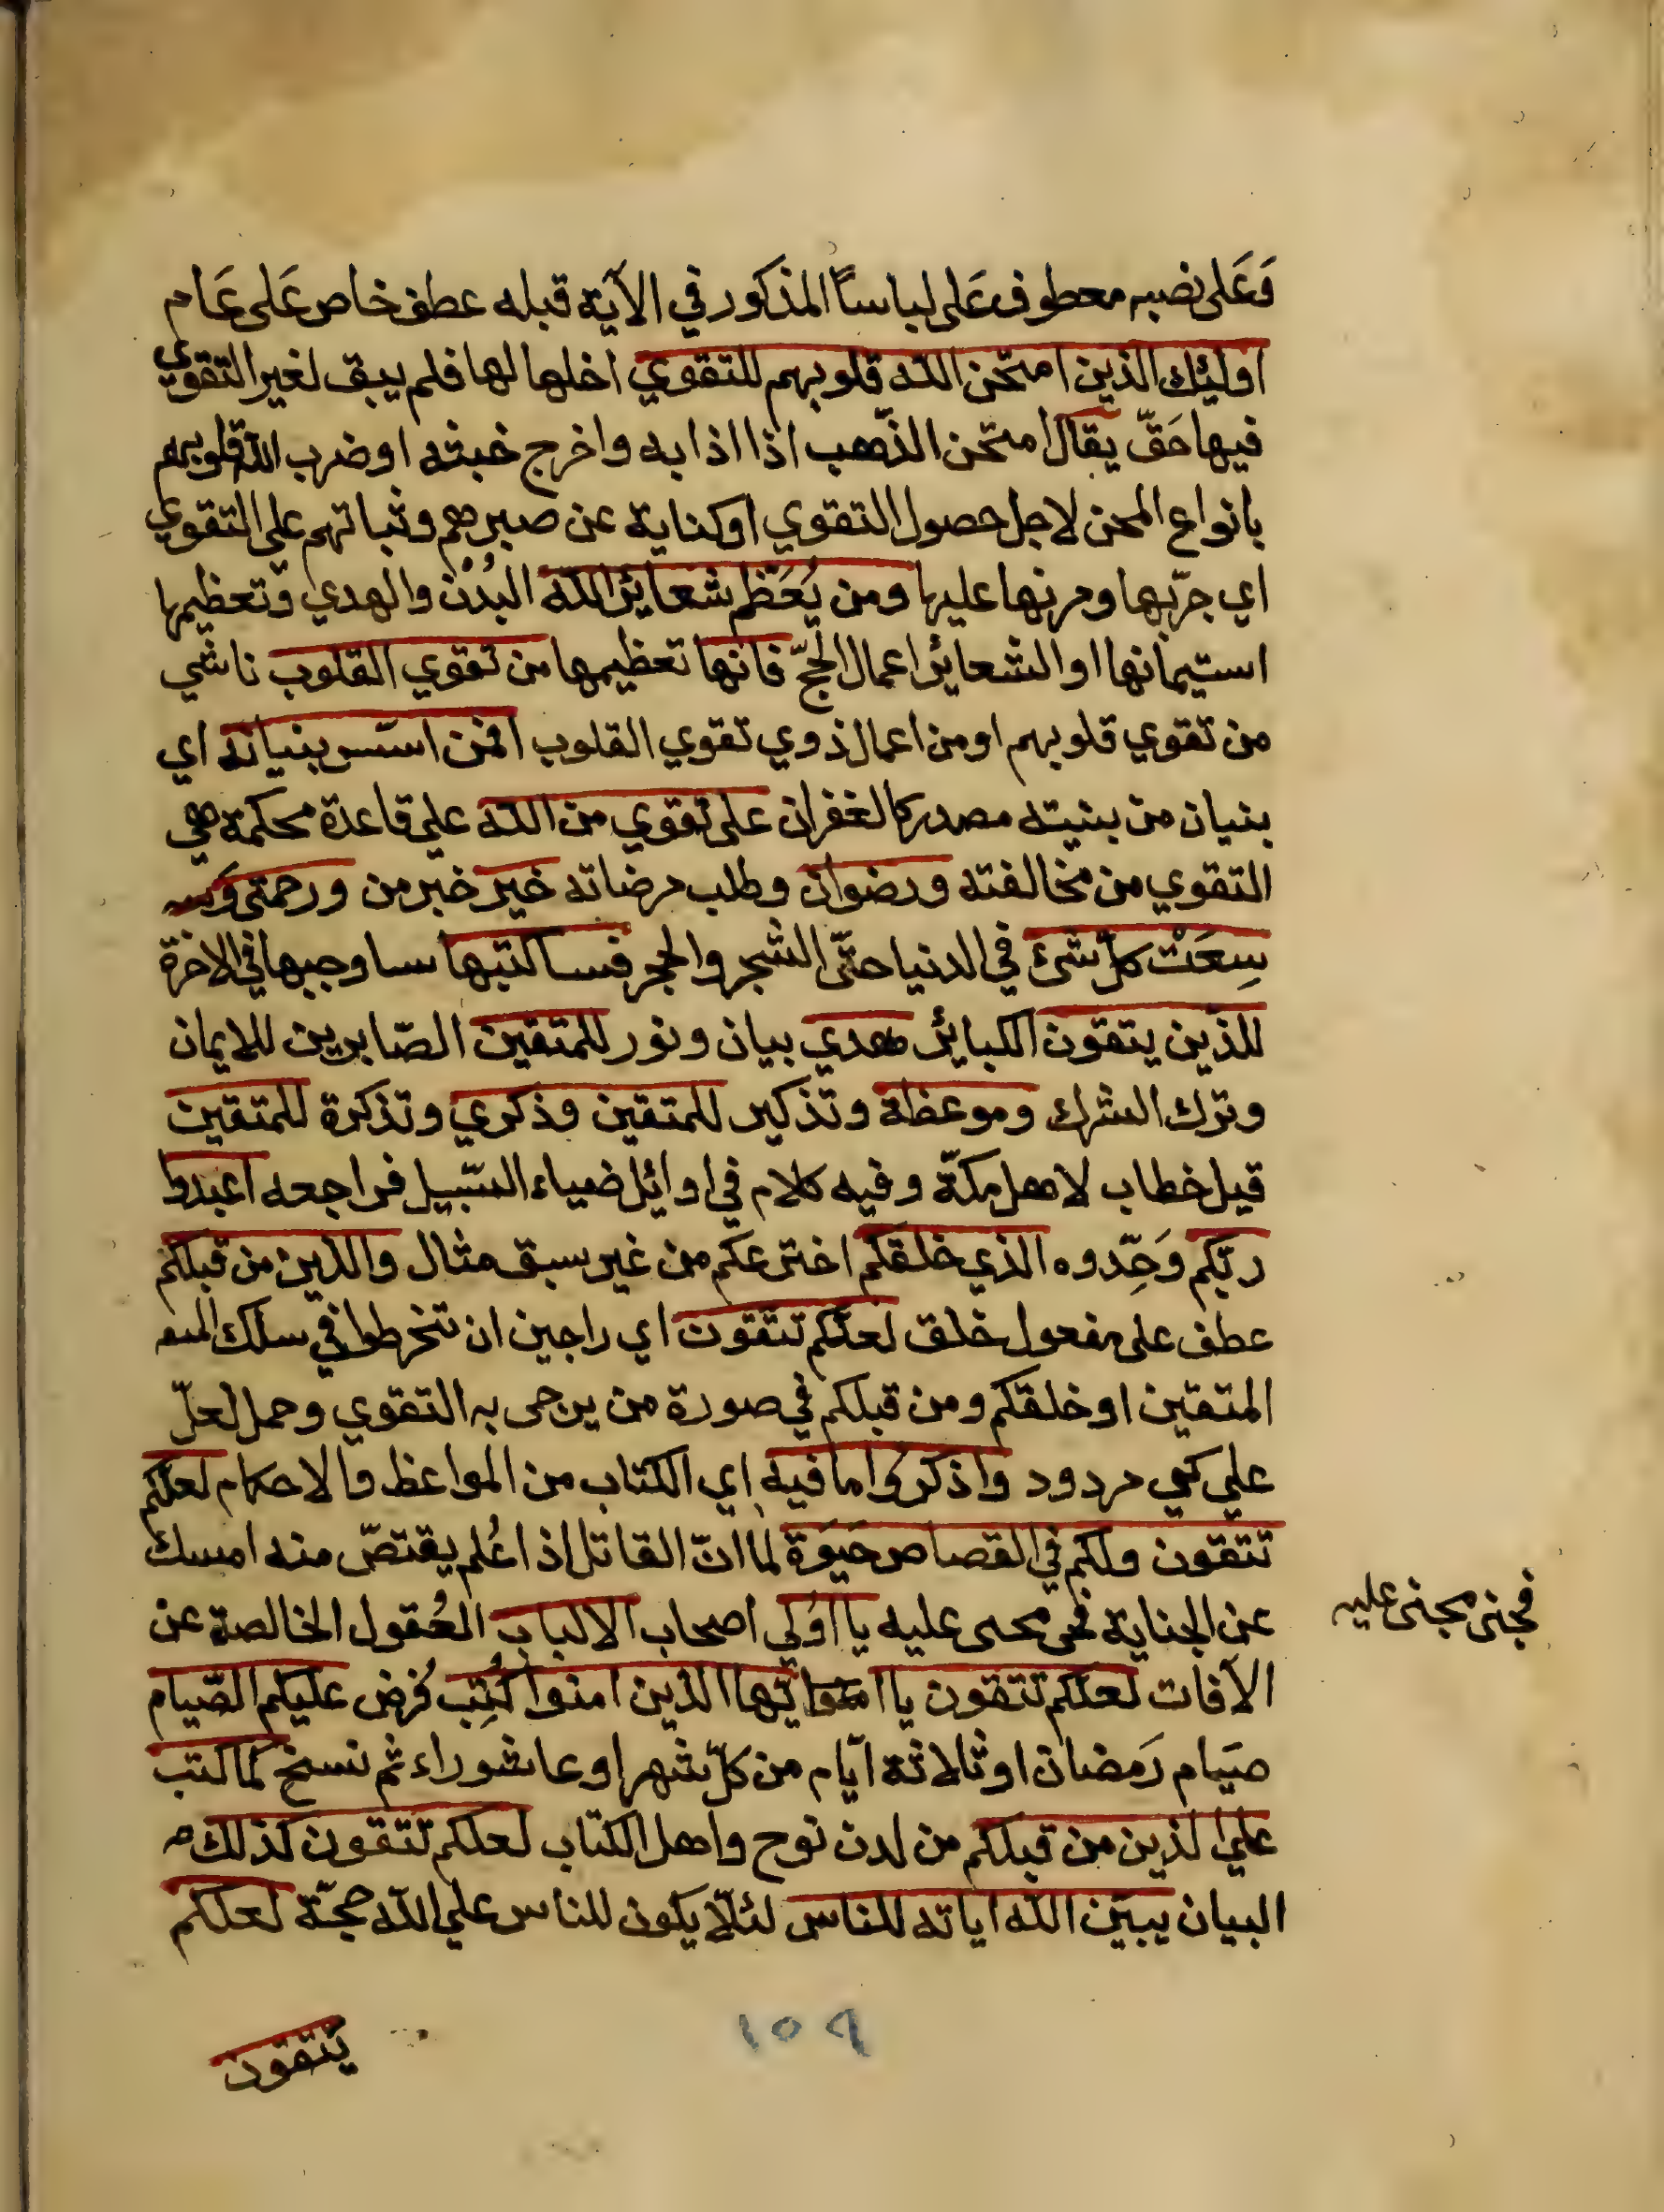 وَعَلى نصبه معطوف عَلى لباساً المذكور في الآية قبله عطف خاص عَلى عَام
اوليٰك الذين امتحن الله قلوبهم للتقوي اخلها لها فلم يبق لغير التقوي
فيها حَقّ يقال امتحن الذّهب اذا اذابه واخرج خبثه او ضرب الله قلوبهم
بانواع المحن لاجل حصول التقوي او كناية عن صبرهم وثباتهم علي التقوي
اي جرّبها ومرنها عليها ومن يُعَظّم شعائر الله البُدْن والهدي وتعظيمها
استيمانها او الشعائر اعمال الحجّ فانها تعظيمها من تقوي القلوب ناشي
من تقوي قلوبهم او من اعمال ذوي تقوي القلوب افمن اسّس بنيانه اي
بنيان من بنيته مصدر كالغفران على تقوي من الله علي قاعدة محكمة هي
التقوي من مخالفته ورضوان وطلب مرضاته خير خبر من ورحمتى وَسـ
سِعَتْ كلّ شئ في الدنيا حتّى الشجر والحجر فساكتبها ساوجبها في الاخرة
للذين يتقون الكبائر هدي بيان ونور للمتقين الصّابرين للايمان
وترك الشرك وموعظة وتذكير للمتقين وذكري وتذكرة للمتقين
قيل خطاب لاهل مكّة وفيه كلام في اوائل ضياء السّبيل فراجعه اعبدوا
ربّكم وَحِّدوه الذي خلقكم اخترعكم من غير سبق مثال والذين من قبلكم
عطف على مفعول خلق لعلّكم تتقون اي راجين ان تنخرطوا في سلك المتقـ
المتقين او خلقكم ومن قبلكم في صورة من يرجى به التقوي وحمل لعلّ
علي كي مردود واذكروا ما فيه اي الكتاب من المواعظ والاحكام لعلكم
تتقون ولكم في القصاص حيَوة لما انّ القاتل اذا عُلم يقتصّ منه امسك
عن الجناية فحى محى عليه يا اُولي اصحاب الالباب العُقول الخالصة عن
الآفات لعلكم تتقون يا ايّها الذين امنوا كُتِب فُرض عليكم الصّيام
صيَام رَمضان او ثلاثة ايّام من كلّ شهر او عاشوراء ثم نسخ كما كتب
علي الذين من قبلكم من لدن نوح واهل الكتاب لعلكم تتقون كذلك
البيان يبيّن الله اياته للناس لئلّا يكون للناس علي الله حجّة لعلكم
فجنى مجنى عليه
يتقون
١٥٩